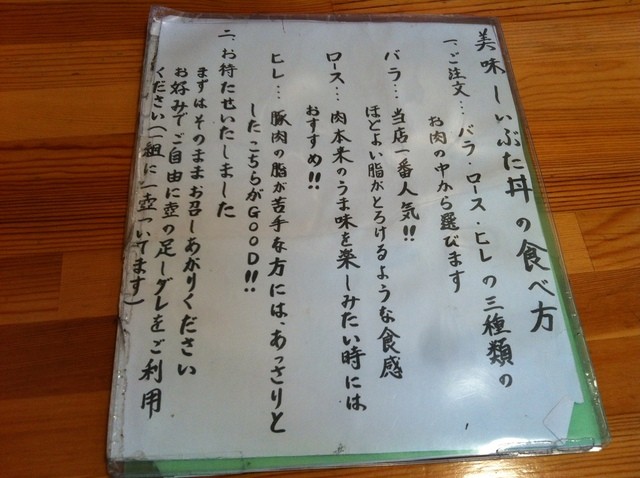 美味しいぶた丼の食べ方
一、ご注文…バラ・ロース・ヒレの三種類の
お肉の中から選びます
バラ…当店一番人気!!
ほどよい脂がとろけるような食感
ロース…肉本来のうま味を楽しみたい時には
おすすめ!!
ヒレ…豚肉の脂が苦手な方には、あっさりと
したこちらがGOOD!!
二、お待たせいたしました
まずはそのままお召しあがりください
お好みでご自由に壺の足しダレをご利用
ください(一組に一壺ついてます)